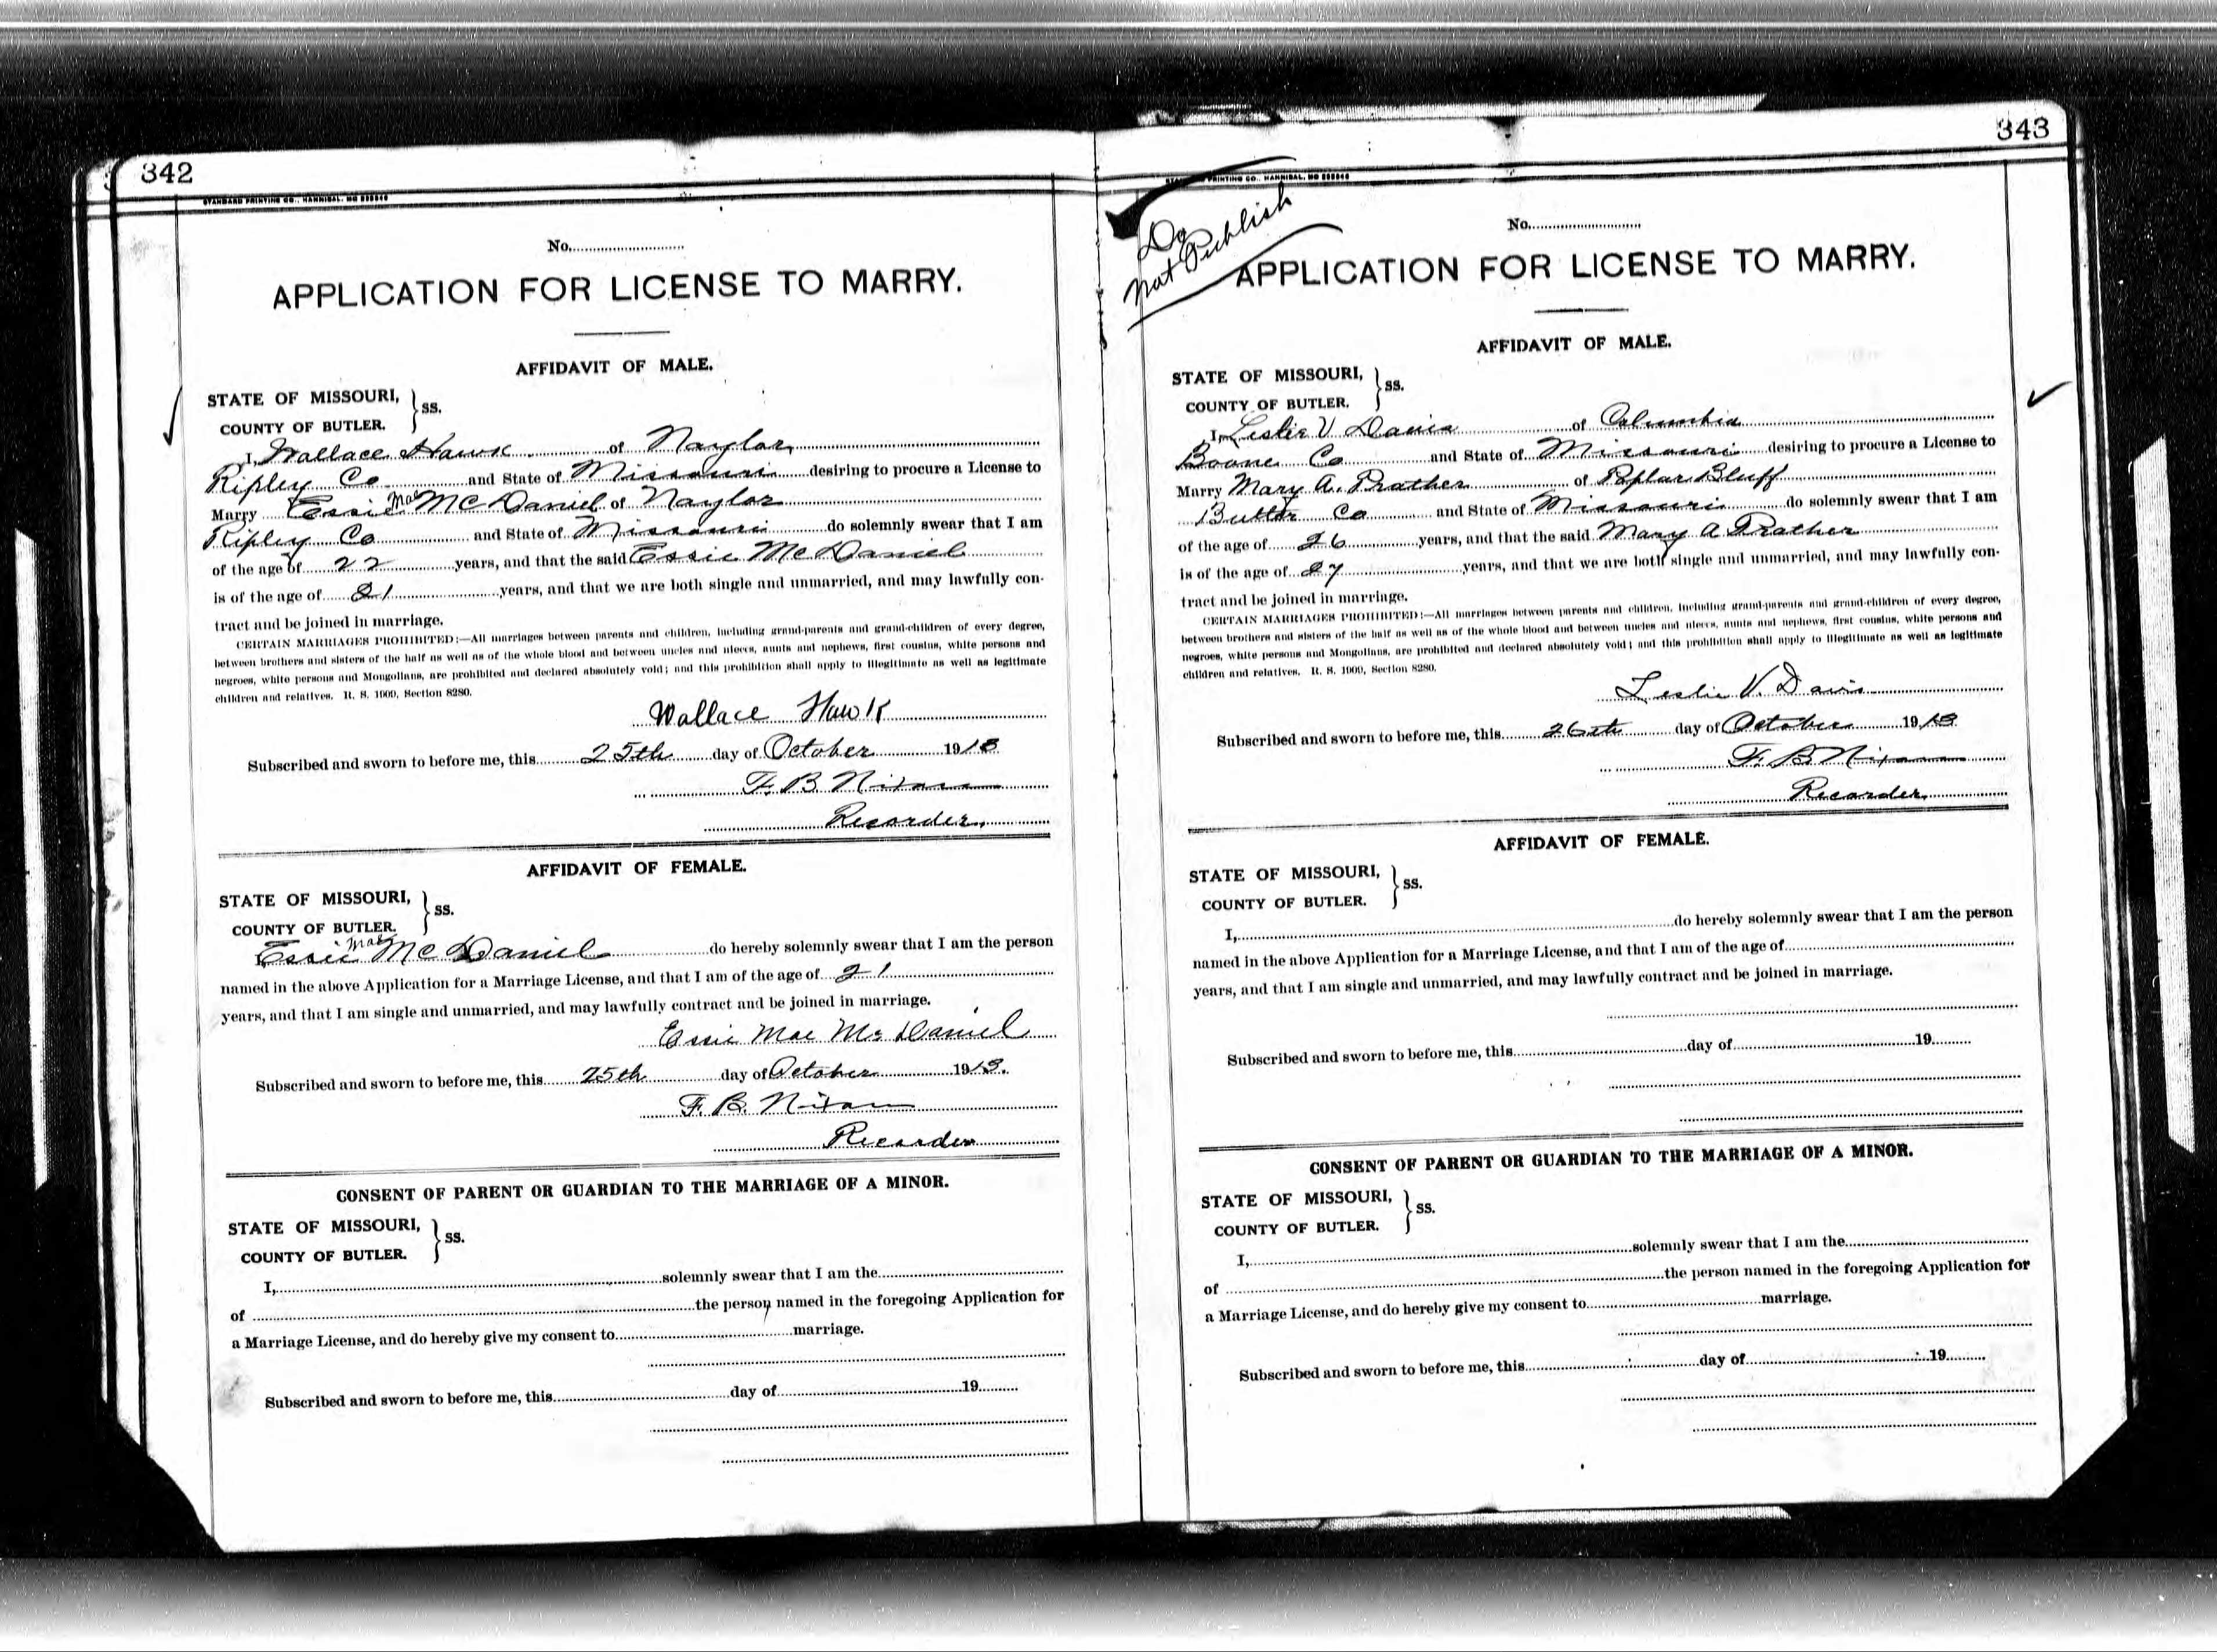 342
STANDARD PRINTING CO., HANNIBAL, MO
No.
APPLICATION FOR LICENSE TO MARRY.
AFFIDAVIT OF MALE.
STATE OF MISSOURI,
COUNTY OF BUTLER. } ss.
I, Wallace Hawk of Naylor
Ripley Co and State of Missouri desiring to procure a License to
Marry Essie Mae McDaniel of Naylor
Ripley Co and State of Missouri do solemnly swear that I am
of the age of 22 years, and that the said Essie McDaniel
is of the age of 21 years, and that we are both single and unmarried, and may lawfully con-
tract and be joined in marriage.
CERTAIN MARRIAGES PROHIBITED:—All marriages between parents and children, including grand-parents and grand-children of every degree,
between brothers and sisters of the half as well as of the whole blood and between uncles and nieces, aunts and nephews, first cousins, white persons and
negroes, white persons and Mongolians, are prohibited and declared absolutely void; and this prohibition shall apply to illegitimate as well as legitimate
children and relatives. R. S. 1909, Section 8280.
Wallace Hawk
Subscribed and sworn to before me, this 25th day of October 1913
F. B. Nixon
Recorder.
AFFIDAVIT OF FEMALE.
STATE OF MISSOURI,
COUNTY OF BUTLER. } ss.
Essie Mae McDaniel do hereby solemnly swear that I am the person
named in the above Application for a Marriage License, and that I am of the age of 21
years, and that I am single and unmarried, and may lawfully contract and be joined in marriage.
Essie Mae McDaniel
Subscribed and sworn to before me, this 25th day of October 1913.
F. B. Nixon
Recorder
CONSENT OF PARENT OR GUARDIAN TO THE MARRIAGE OF A MINOR.
STATE OF MISSOURI,
COUNTY OF BUTLER. } ss.
I, solemnly swear that I am the
of the person named in the foregoing Application for
a Marriage License, and do hereby give my consent to marriage.
Subscribed and sworn to before me, this day of 19
343
PRINTING CO., HANNIBAL, MO
Do
not Publish
No.
APPLICATION FOR LICENSE TO MARRY.
AFFIDAVIT OF MALE.
STATE OF MISSOURI,
COUNTY OF BUTLER. } ss.
I, Leslie V Davis of Columbia
Boone Co and State of Missouri desiring to procure a License to
Marry Mary A. Prather of Poplar Bluff
Butler Co and State of Missouri do solemnly swear that I am
of the age of 26 years, and that the said Mary A Prather
is of the age of 27 years, and that we are both single and unmarried, and may lawfully con-
tract and be joined in marriage.
CERTAIN MARRIAGES PROHIBITED:—All marriages between parents and children, including grand-parents and grand-children of every degree,
between brothers and sisters of the half as well as of the whole blood and between uncles and nieces, aunts and nephews, first cousins, white persons and
negroes, white persons and Mongolians, are prohibited and declared absolutely void; and this prohibition shall apply to illegitimate as well as legitimate
children and relatives. R. S. 1909, Section 8280.
Leslie V. Davis
Subscribed and sworn to before me, this 26th day of October 1913
F. B. Nixon
Recorder.
AFFIDAVIT OF FEMALE.
STATE OF MISSOURI,
COUNTY OF BUTLER. } ss.
I, do hereby solemnly swear that I am the person
named in the above Application for a Marriage License, and that I am of the age of
years, and that I am single and unmarried, and may lawfully contract and be joined in marriage.
Subscribed and sworn to before me, this day of 19
CONSENT OF PARENT OR GUARDIAN TO THE MARRIAGE OF A MINOR.
STATE OF MISSOURI,
COUNTY OF BUTLER. } ss.
I, solemnly swear that I am the
of the person named in the foregoing Application for
a Marriage License, and do hereby give my consent to marriage.
Subscribed and sworn to before me, this day of 19